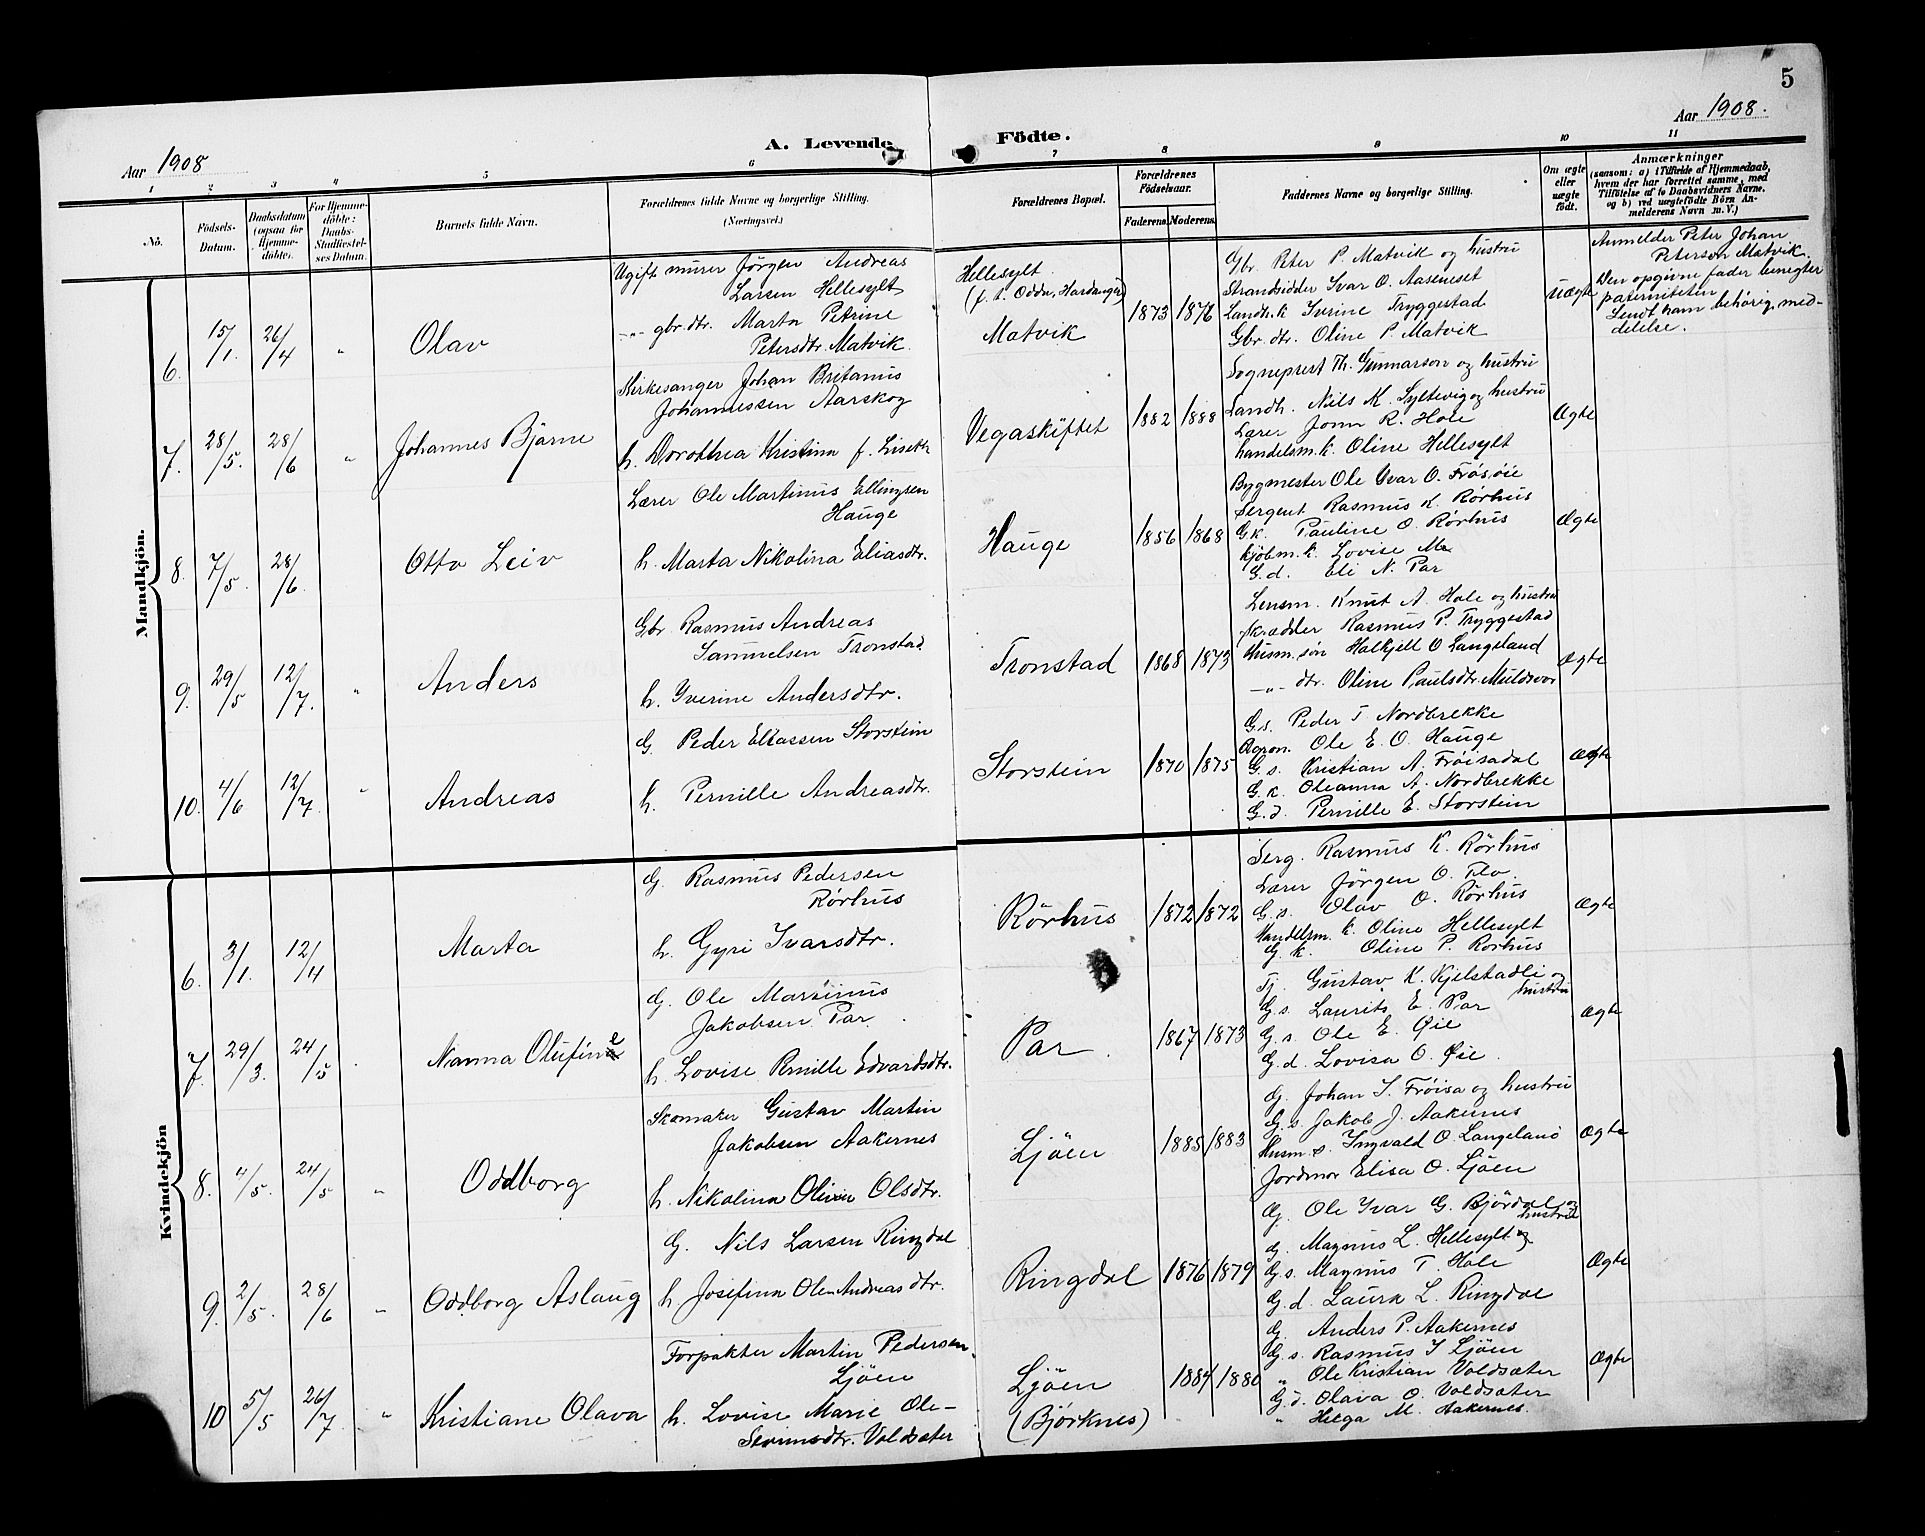 5
Aar 1908
A. Levende Födte.
Aar 1908.
1 2 3 4 5 6 7 8 9 10 11
No.
Födsels-
Datum.
Daabsdatum
(ogsaa for
Hjemme-
döbte).
For Hjemme-
döbte:
Daabs-
Stadfæstel-
ses Datum.
Barnets fulde Navn.
Forældrenes fulde Navne og borgerlige Stilling.
(Næringsvei.)
Forældrenes Bopæl.
Forældrenes
Födselsaar.
Faderens. Moderens.
Faddernes Navne og borgerlige Stilling.
Om ægte
eller
uægte
födt.
Anmærkninger
(saasom: a) i Tilfælde af Hjemmedaab,
hvem der har forrettet samme, med
Tilföielse af to Daabsvidners Navne,
og b) ved uægtefödte Börn An-
melderens Navn m. V.)
Mandkjön.
6. 15/1. 26/4 " Olav
Ugift murer Jörgen Andreas
Larsen Hellesylt
-"- gbr. dtr. Marta Petrine
Petersdtr. Matvik.
Hellesylt
(f. t. Odda, Hardanger)
Matvik
1873 1876
Gbr. Peter P. Matvik og hustru
Strandsidder Ivar O. Aaseneset
Landh. k Iverine Tryggestad
Gbr. dtr. Oline P. Matvik
uægte
Anmelder Peter Johan
Peterson Matvik.
Den opgivne fader benegter
paterniteten.
Sendt ham behörig med-
delelse.
7. 28/5. 28/6 " Johannes Bjarne
Kirkesanger Johan Britanus
Johannessen Aarskog
h. Dorothea Kristina f. Liseth
Vegaskiftet
1882 1888
Sogneprest Th. Gunnarson og hustru
Landh. Nils K. Syltevig og hustru
Lærer Jonn R. Hole
Handelsm. k. Oline Hellesylt
Ægte
8. 7/5. 28/6. Otto Leiv
Lærer Ole Martinus Ellingsen
Hauge
h. Marta Nikolina Eliasdtr.
Hauge
1856 1868
Bygmester Ole Ivar O. Frösöie
Sergent. Rasmus K. Rörhus
G.k. Pauline O. Rörhus
Kjöbm. k. Lovise Mx
G.d. Eli N. Par
Ægte
9. 29/5 12/7. " Anders
Gbr. Rasmus Andreas
Sammelsen Tronstad
h. Iverine Andersdtr.
Tronstad
1868 1873
Lensm. Knut A. Hole og hustru
Skrædder Rasmus P. Tryggestad
Husm. sön Halkjell O Langeland
-"- dtr. Oline Paulsdtr. Muldsvor
Ægte
10. 4/6 12/7. " Andreas
G. Peder Eliassen Storstein
h. Pernille Andreasdtr.
Storstein
1870 1875
G.s. Peder T Nordbrekke
Agron. Ole E. O. Hauge
G.s. Kristian A. Fröisadal
G.k. Oleanna A. Nordbrekke
G.d. Pernille E. Storstein
Ægte
Kvindekjön
6. 3/1. 12/4 Marta
G. Rasmus Pedersen
Rörhus
h. Gyri Ivarsdtr.
Rörhus
1872 1872
Serg. Rasmus K. Rörhus
Lærer Jörgen O. Flo.
G.s. Olav O. Rörhus
Handelsm. k. Oline Hellesylt
G.k. Oline P. Rörhus
Ægte
7. 29/3. 24/5 Nanna Olufine
G. Ole Martinus
Jakobsen Par
h. Lovise Pernille Edvardsdtr.
Par.
1867 1873
Tj. Gustav K. Kjelstadli og
hustru
G.s. Laurits E. Par
G.s. Ole E. Øie
G.d. Lovisa O. Øie.
Ægte
8. 4/5. 24/5 " Oddborg
Skomaker Gustav Martin
Jakobsen Aakernes
h. Nikolina Olivia Olsdtr.
Ljöen
1885 1883
G. Johan S. Fröisa og hustru
G.s. Jakob J. Aakernes
Husm. s. Ingvald O. Langeland
Jordmor Elisa O. Ljöen
Ægte
9. 2/5. 28/6 " Oddborg Aslaug
G. Nils Larsen Ringdal
h. Josefina Ole-Andreasdtr.
Ringdal
1876 1879
G. Ole Ivar G. Björdal og
hustru
G. Magnus L. Hellesylt og
G.s. Magnus T. Hole
G.d. Laura L. Ringdal
Ægte
10 5/5 26/7. " Kristiane Olava
Forpakter Martin Pedersen
Ljöen
h. Lovise Marie Ole-
Sevrinsdtr. Voldsæter
Ljöen
(Björknes)
1884 1880
G. Anders P. Aakernes
G.s. Rasmus I Ljöen
" Ole Kristian Voldsæter
G.d. Olava O. Voldsæter
" Helga M. Aakernes.
Ægte